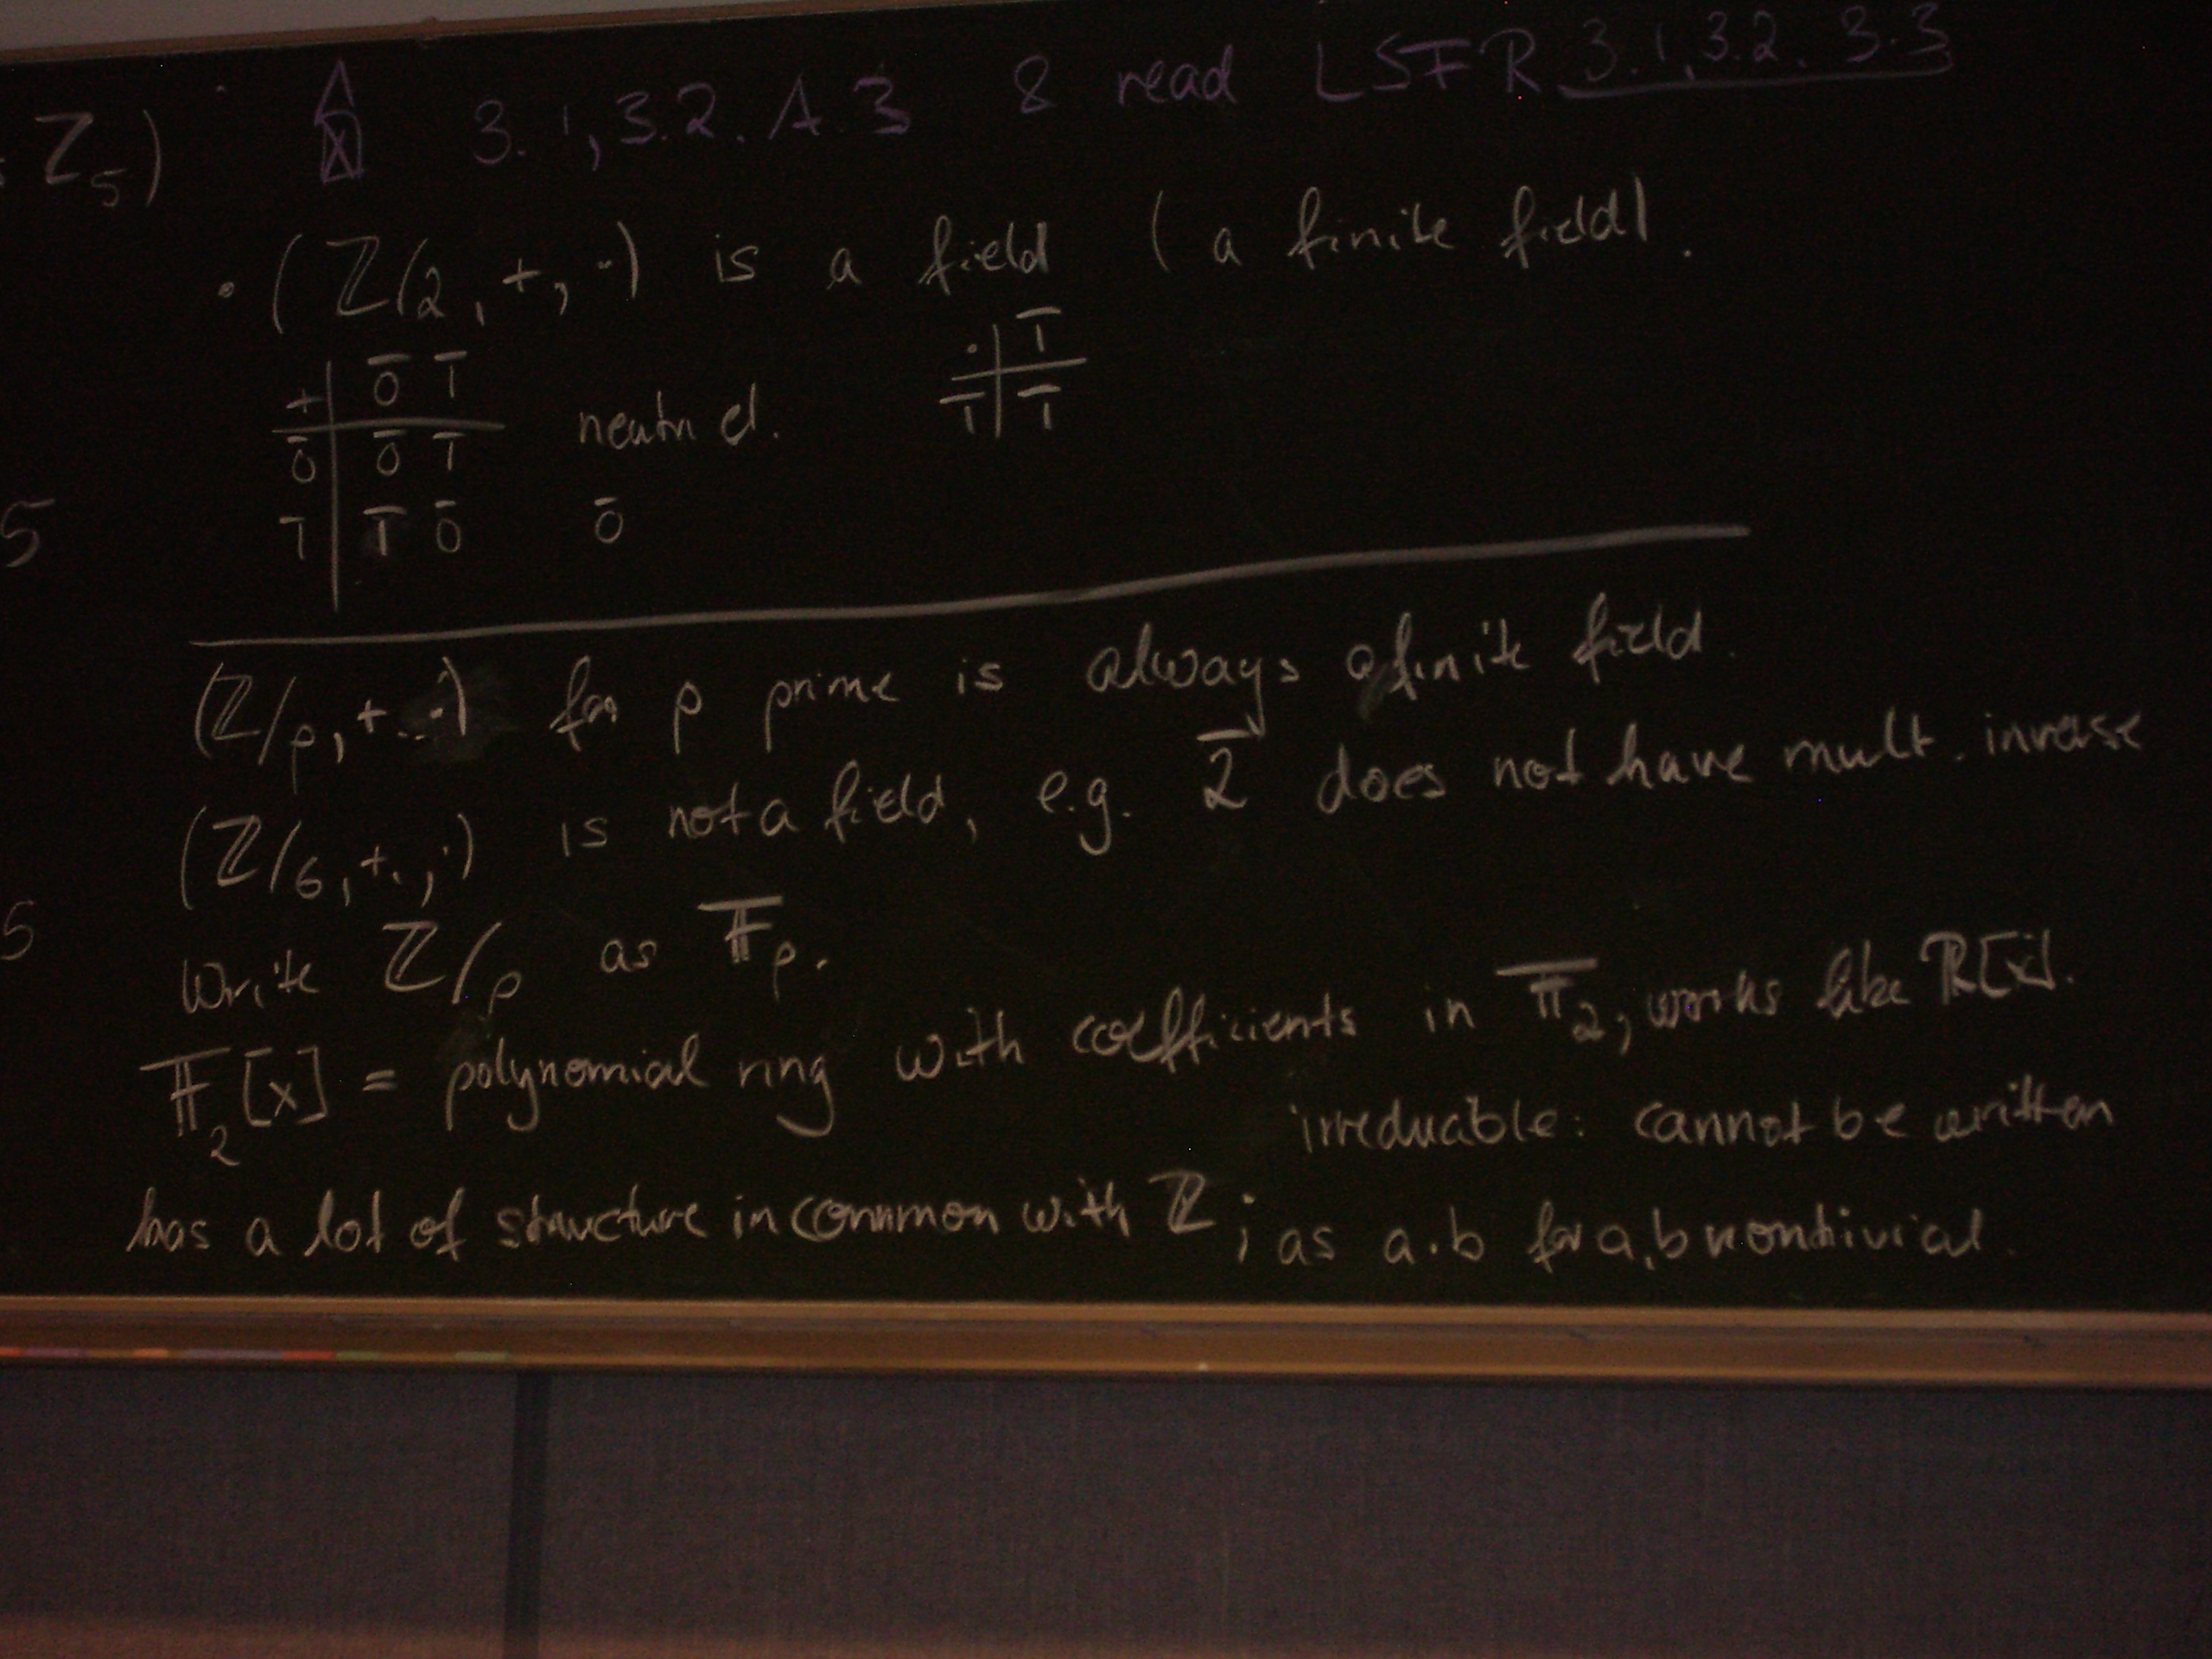 Z₅) 3.1, 3.2. A.3 & read LSFR 3.1, 3.2. 3.3
• (ℤ/2, +, ·) is a field (a finite field).
+ | 0̄ 1̄
0̄ | 0̄ 1̄ neutr el.
1̄ | 1̄ 0̄ 0̄
· | 1̄
1̄ | 1̄
5
(ℤ/p, +, ·) for p prime is always a finite field.
(ℤ/6, +, ·) is not a field, e.g. 2̄ does not have mult. inverse
5
Write ℤ/p as 𝔽p.
𝔽₂[x] = polynomial ring with coefficients in 𝔽₂; works like ℝ[x].
irreducible: cannot be written
has a lot of structure in common with ℤ; as a·b for a, b nontrivial.